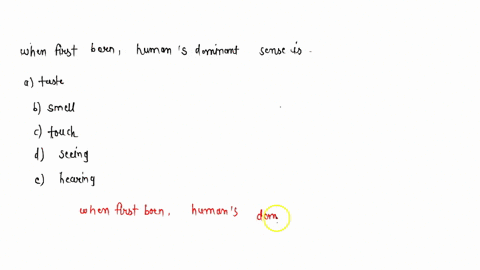 when first born, human's dominant sense is.
a) taste
b) smell
c) touch
d) seeing
e) hearing
when first born, human's dom